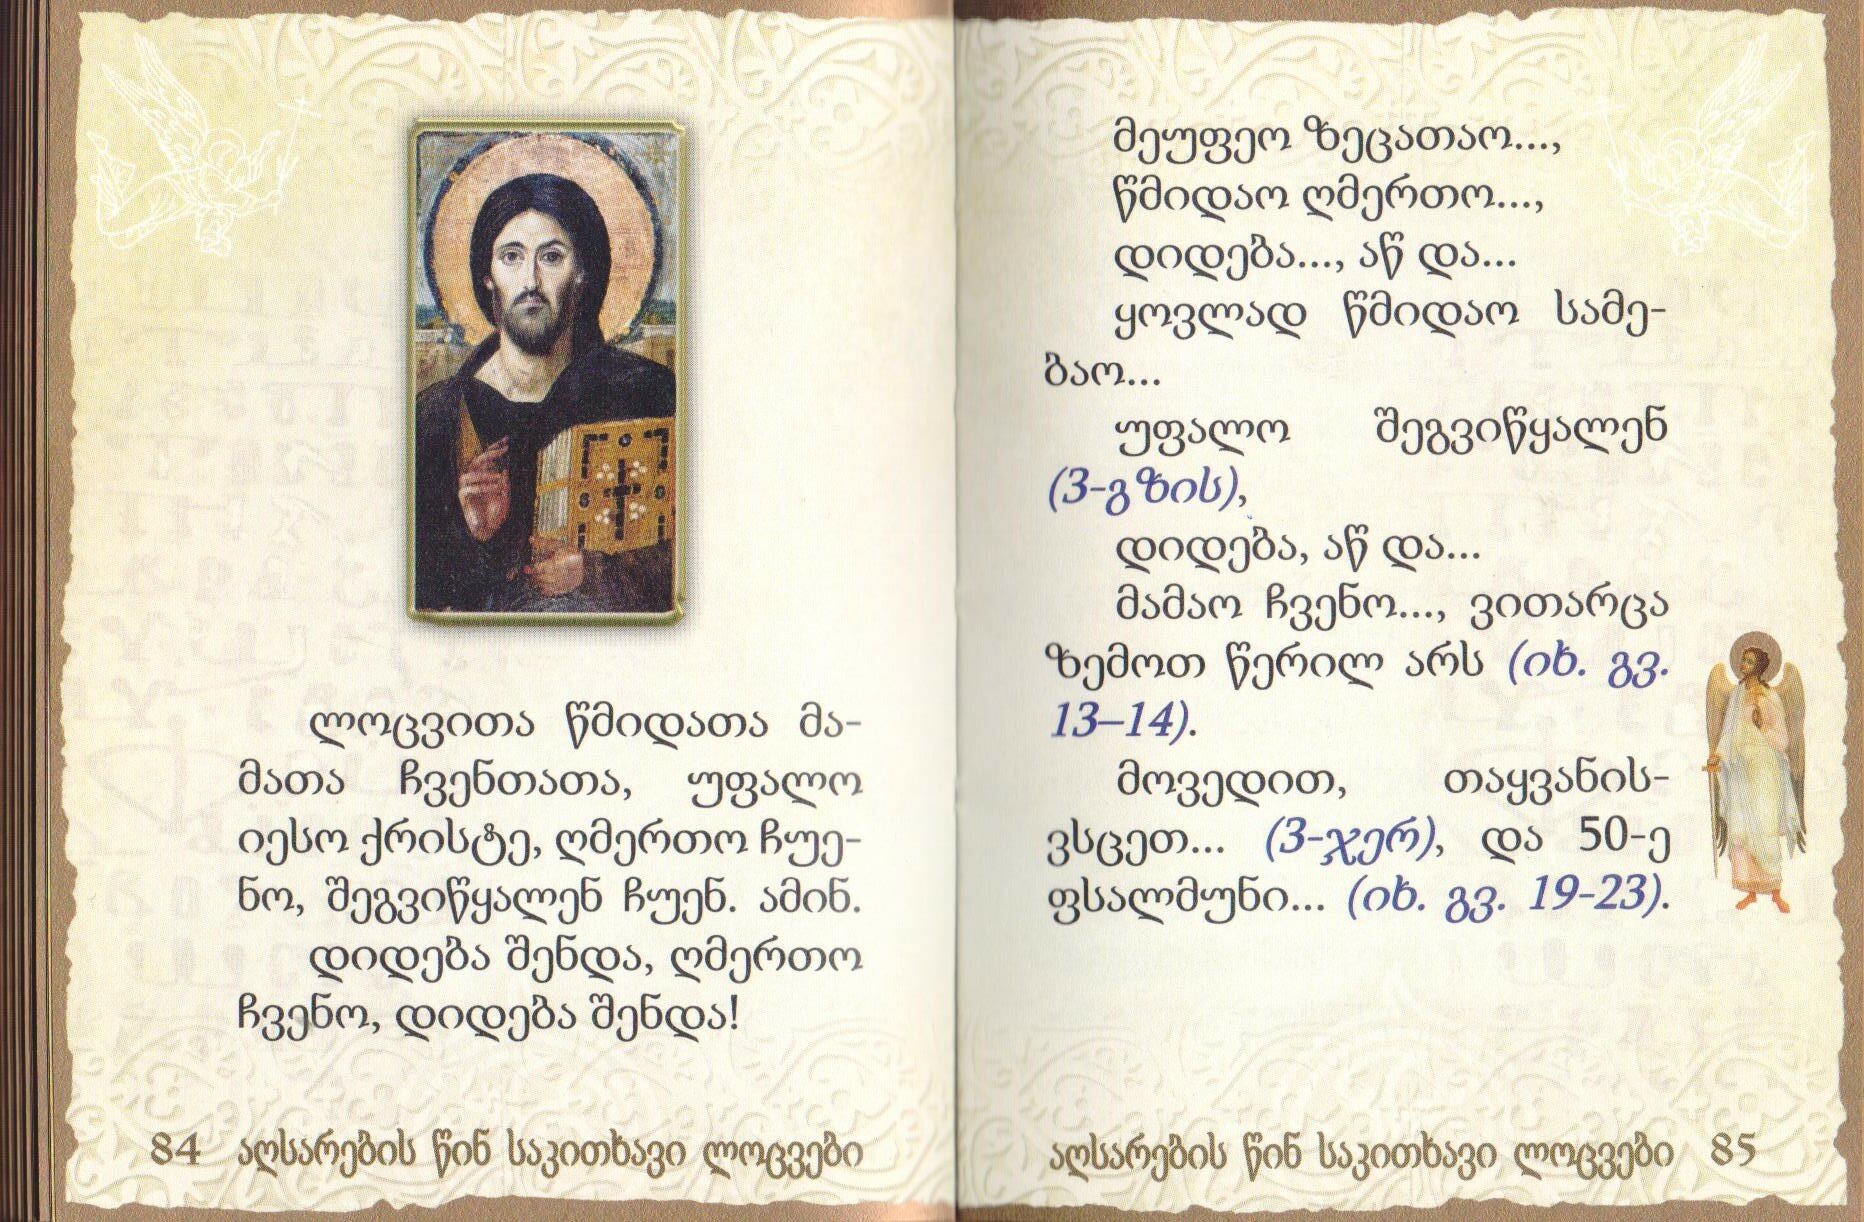 ლოცვითა წმიდათა მა-
მათა ჩვენთათა, უფალო
იესო ქრისტე, ღმერთო ჩუე-
ნო, შეგვიწყალენ ჩუენ. ამინ.
დიდება შენდა, ღმერთო
ჩვენო, დიდება შენდა!
84 აღსარების წინ საკითხავი ლოცვები
მეუფეო ზეცათაო...,
წმიდაო ღმერთო...,
დიდება..., აწ და...
ყოვლად წმიდაო სამე-
ბაო...
უფალო შეგვიწყალენ
(3-გზის),
დიდება, აწ და...
მამაო ჩვენო..., ვითარცა
ზემოთ წერილ არს (იხ. გვ.
13–14).
მოვედით, თაყვანის-
ვსცეთ... (3-ჯერ), და 50-ე
ფსალმუნი... (იხ. გვ. 19-23).
აღსარების წინ საკითხავი ლოცვები 85